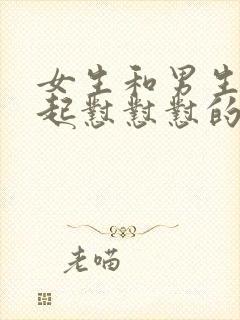 女生和男生
起怼怼怼的
老喵